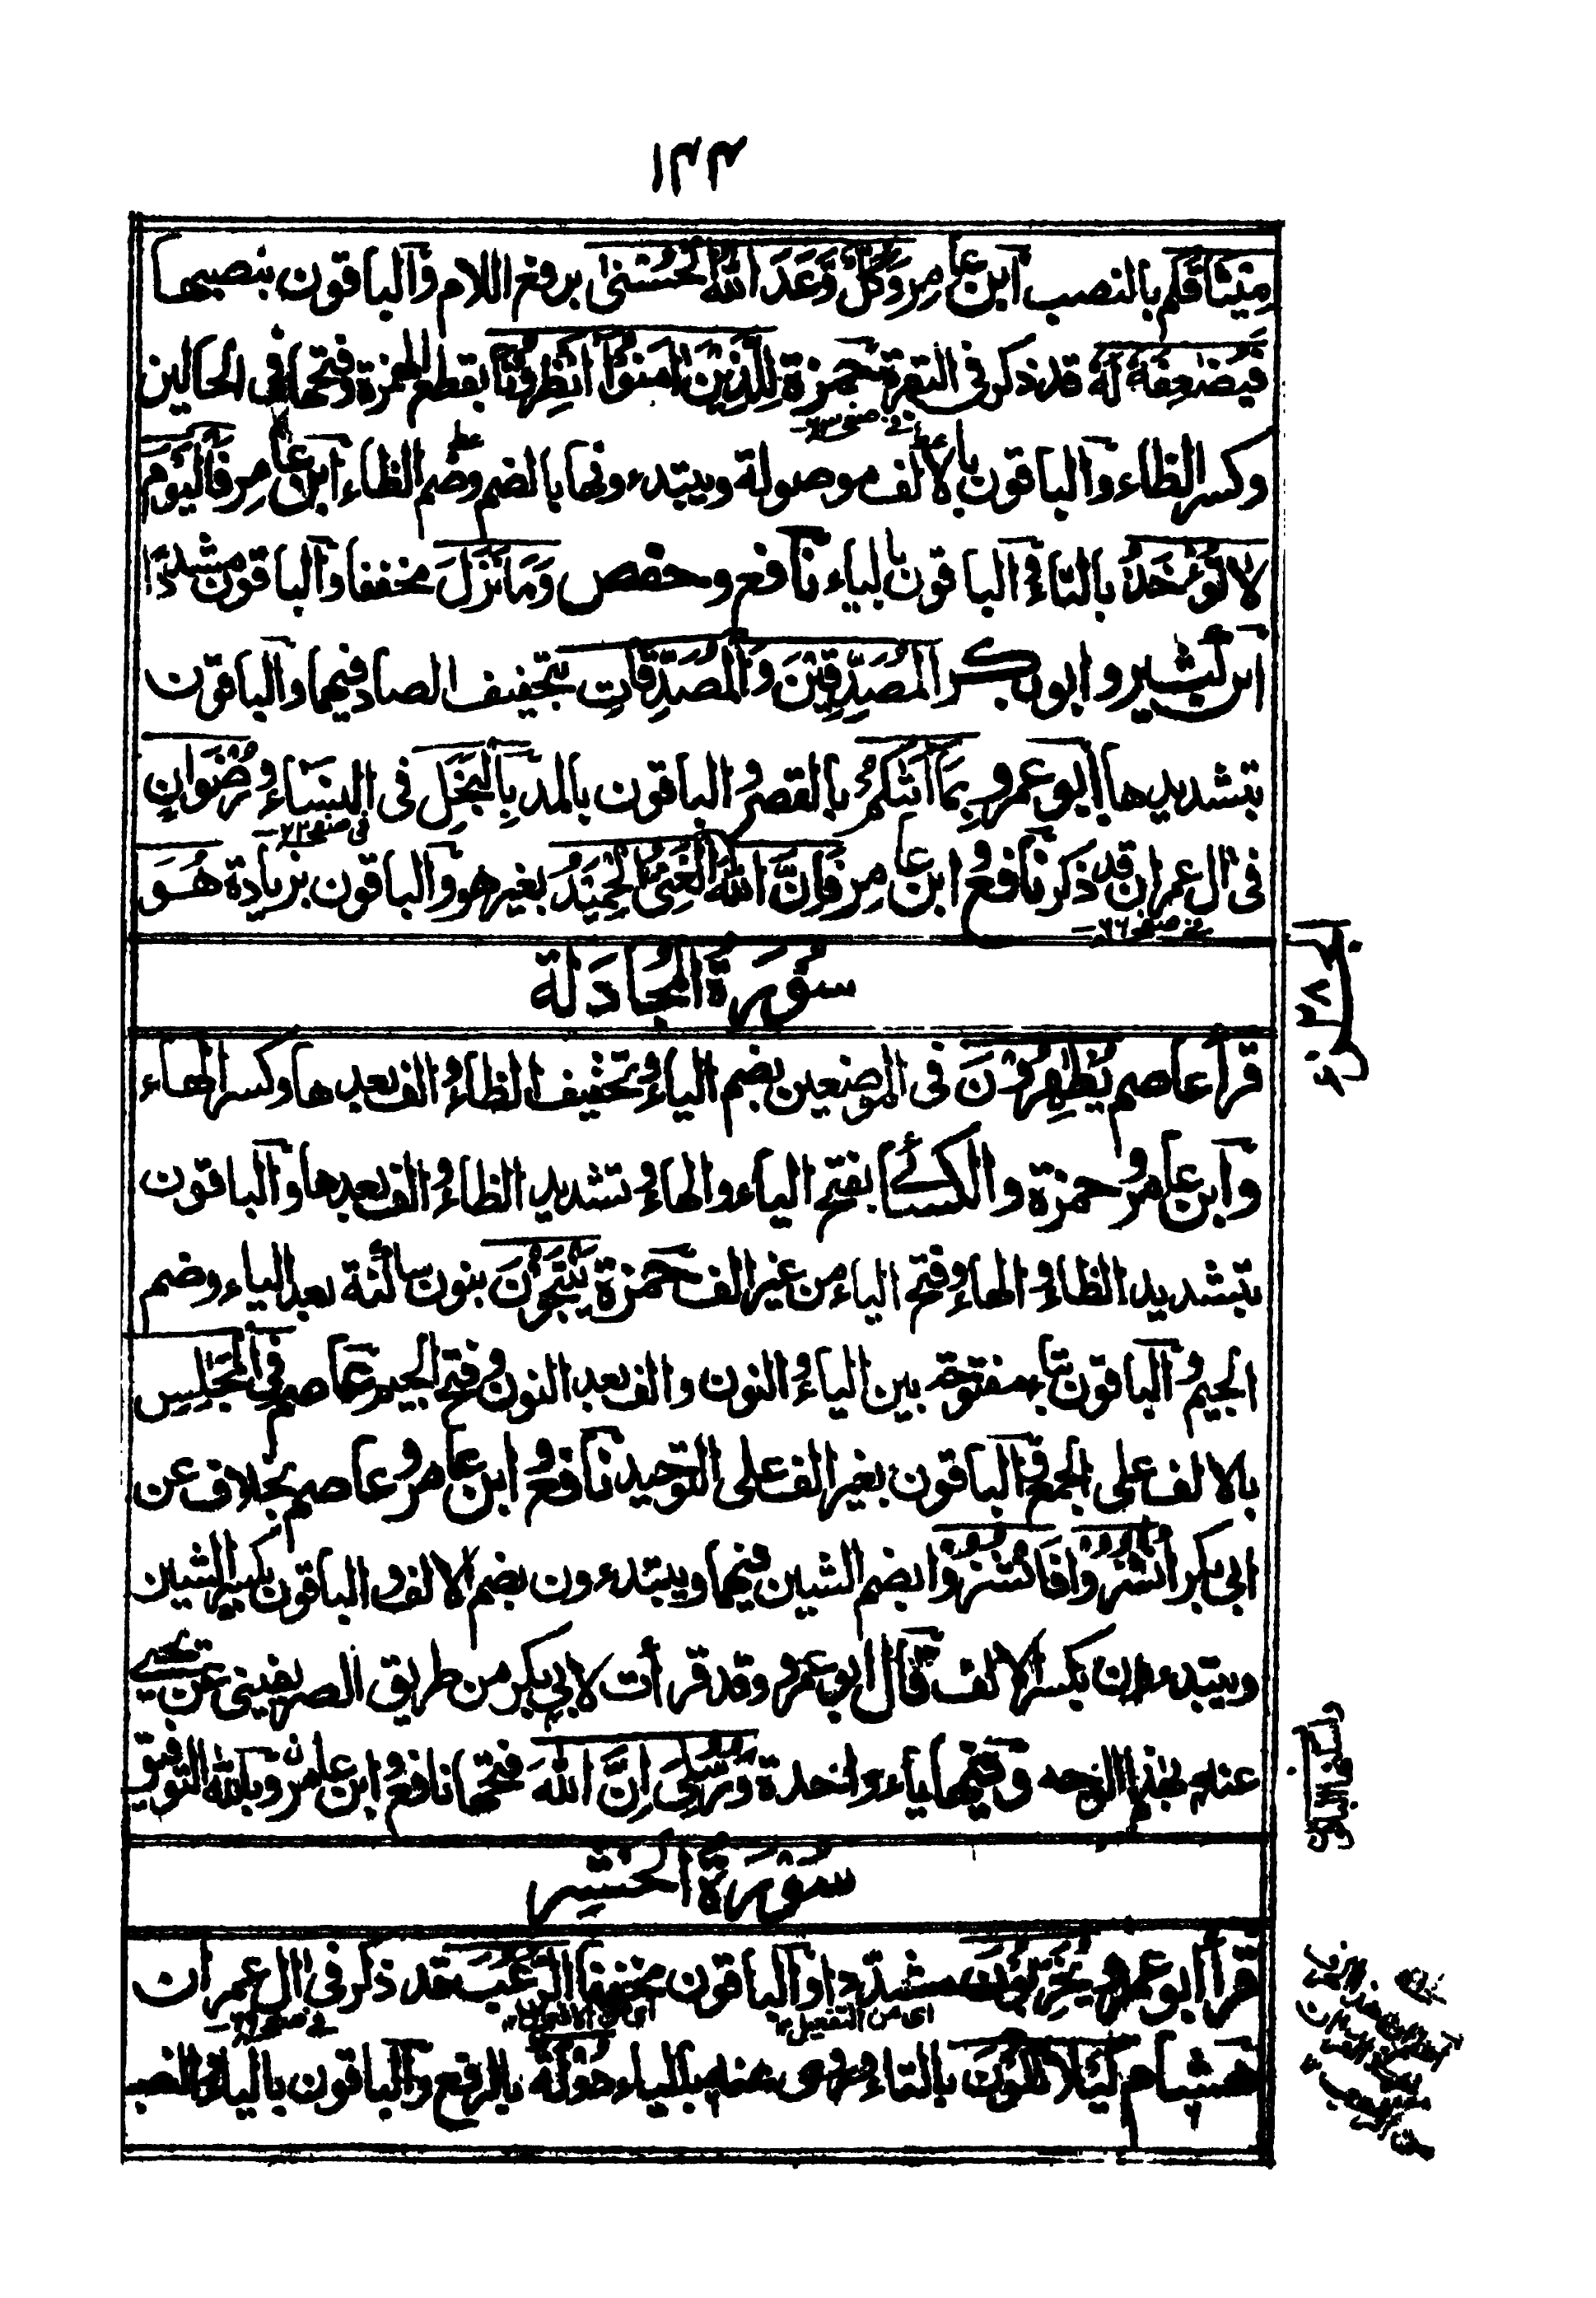 ١٣٣
مِيْثَاقَكُم بالنصب ابن عامر وَكُلٌّ وَّعَدَ اللهُ الْحُسْنٰى برفع اللام والباقون بنصبها
فَيُضٰعِفَهٗ لَهٗ قد ذكر فى البقرة حمزة لِلَّذِيْنَ اٰمَنُوا انْظُرُوْنَا بقطع الهمزة وفتحها فى الحالين
فى صفحه
وكسر الظاء والباقون بالالف موصولة ويبتدءونها بالضم وضم الظاء ابن عامر فَالْيَوْمَ
لَا تُؤْخَذُ بالتاء والباقون بالياء نافع وحفص وَمَا نَزَلَ مخففا والباقون مشددًا
ابن كثير وابوبكر الْمُصَدِّقِيْنَ وَالْمُصَدِّقَاتِ بتخفيف الصاد فيهما والباقون
بتشديدها ابو عمرو بِمَا اَتٰىكُمْ بالقصر والباقون بالمد بِالْبُخْلِ فى النساء ورِضْوَانٍ
فى صفحه ٧٣
فى اٰل عمران قد ذكر نافع وابن عامر فَاِنَّ اللهَ الْغَنِىُّ الْحَمِيْدُ بغير هو والباقون بزيادة هُوَ
فى صفحه ٦٦
سُوْرَةُ الْمُجَادَلَة
قرأ عاصم يُظٰهِرُوْنَ فى الموضعين بضم الياء وتخفيف الظاء والف بعدها وكسر الهاء
وابن عامر وحمزة والكسائى بفتح الياء والهاء وتشديد الظاء والف بعدها والباقون
بتشديد الظاء والهاء وفتح الياء من غير الف حمزة يَنْتَجُوْنَ بنون ساكنة بعد الياء وضم
الجيم والباقون بتاء مفتوحة بين الياء والنون والف بعد النون وفتح الجيم عاصم فِى الْمَجٰلِسِ
بالالف على الجمع والباقون بغير الف على التوحيد نافع وابن عامر وعاصم بخلاف عن
ابى بكر انْشُزُوْا فَانْشُزُوْا بضم الشين فيهما ويبتدءون بضم الالف والباقون بكسر الشين
ويبتدءون بكسر الالف قال ابو عمرو وقد قرأت لابى بكر من طريق الصريفينى عن يحيى
عنه بهذا الوجه وفيها ياء واحدة وَرُسُلِىَ اِنَّ اللهَ فتحها نافع وابن عامر وبالله التوفيق
سُوْرَةُ الْحَشْر
قرأ ابو عمرو يُخَرِّبُوْنَ مشددا والباقون مخففا الرُّعْبَ قد ذكر فى اٰل عمران
اى من التفعيل
فى صفحه ٦٦
هشام لِكَيْلَا تَكُوْنَ بالتاء وروى عنه بالياء دُوْلَةٌ بالرفع والباقون بالياء والنصب